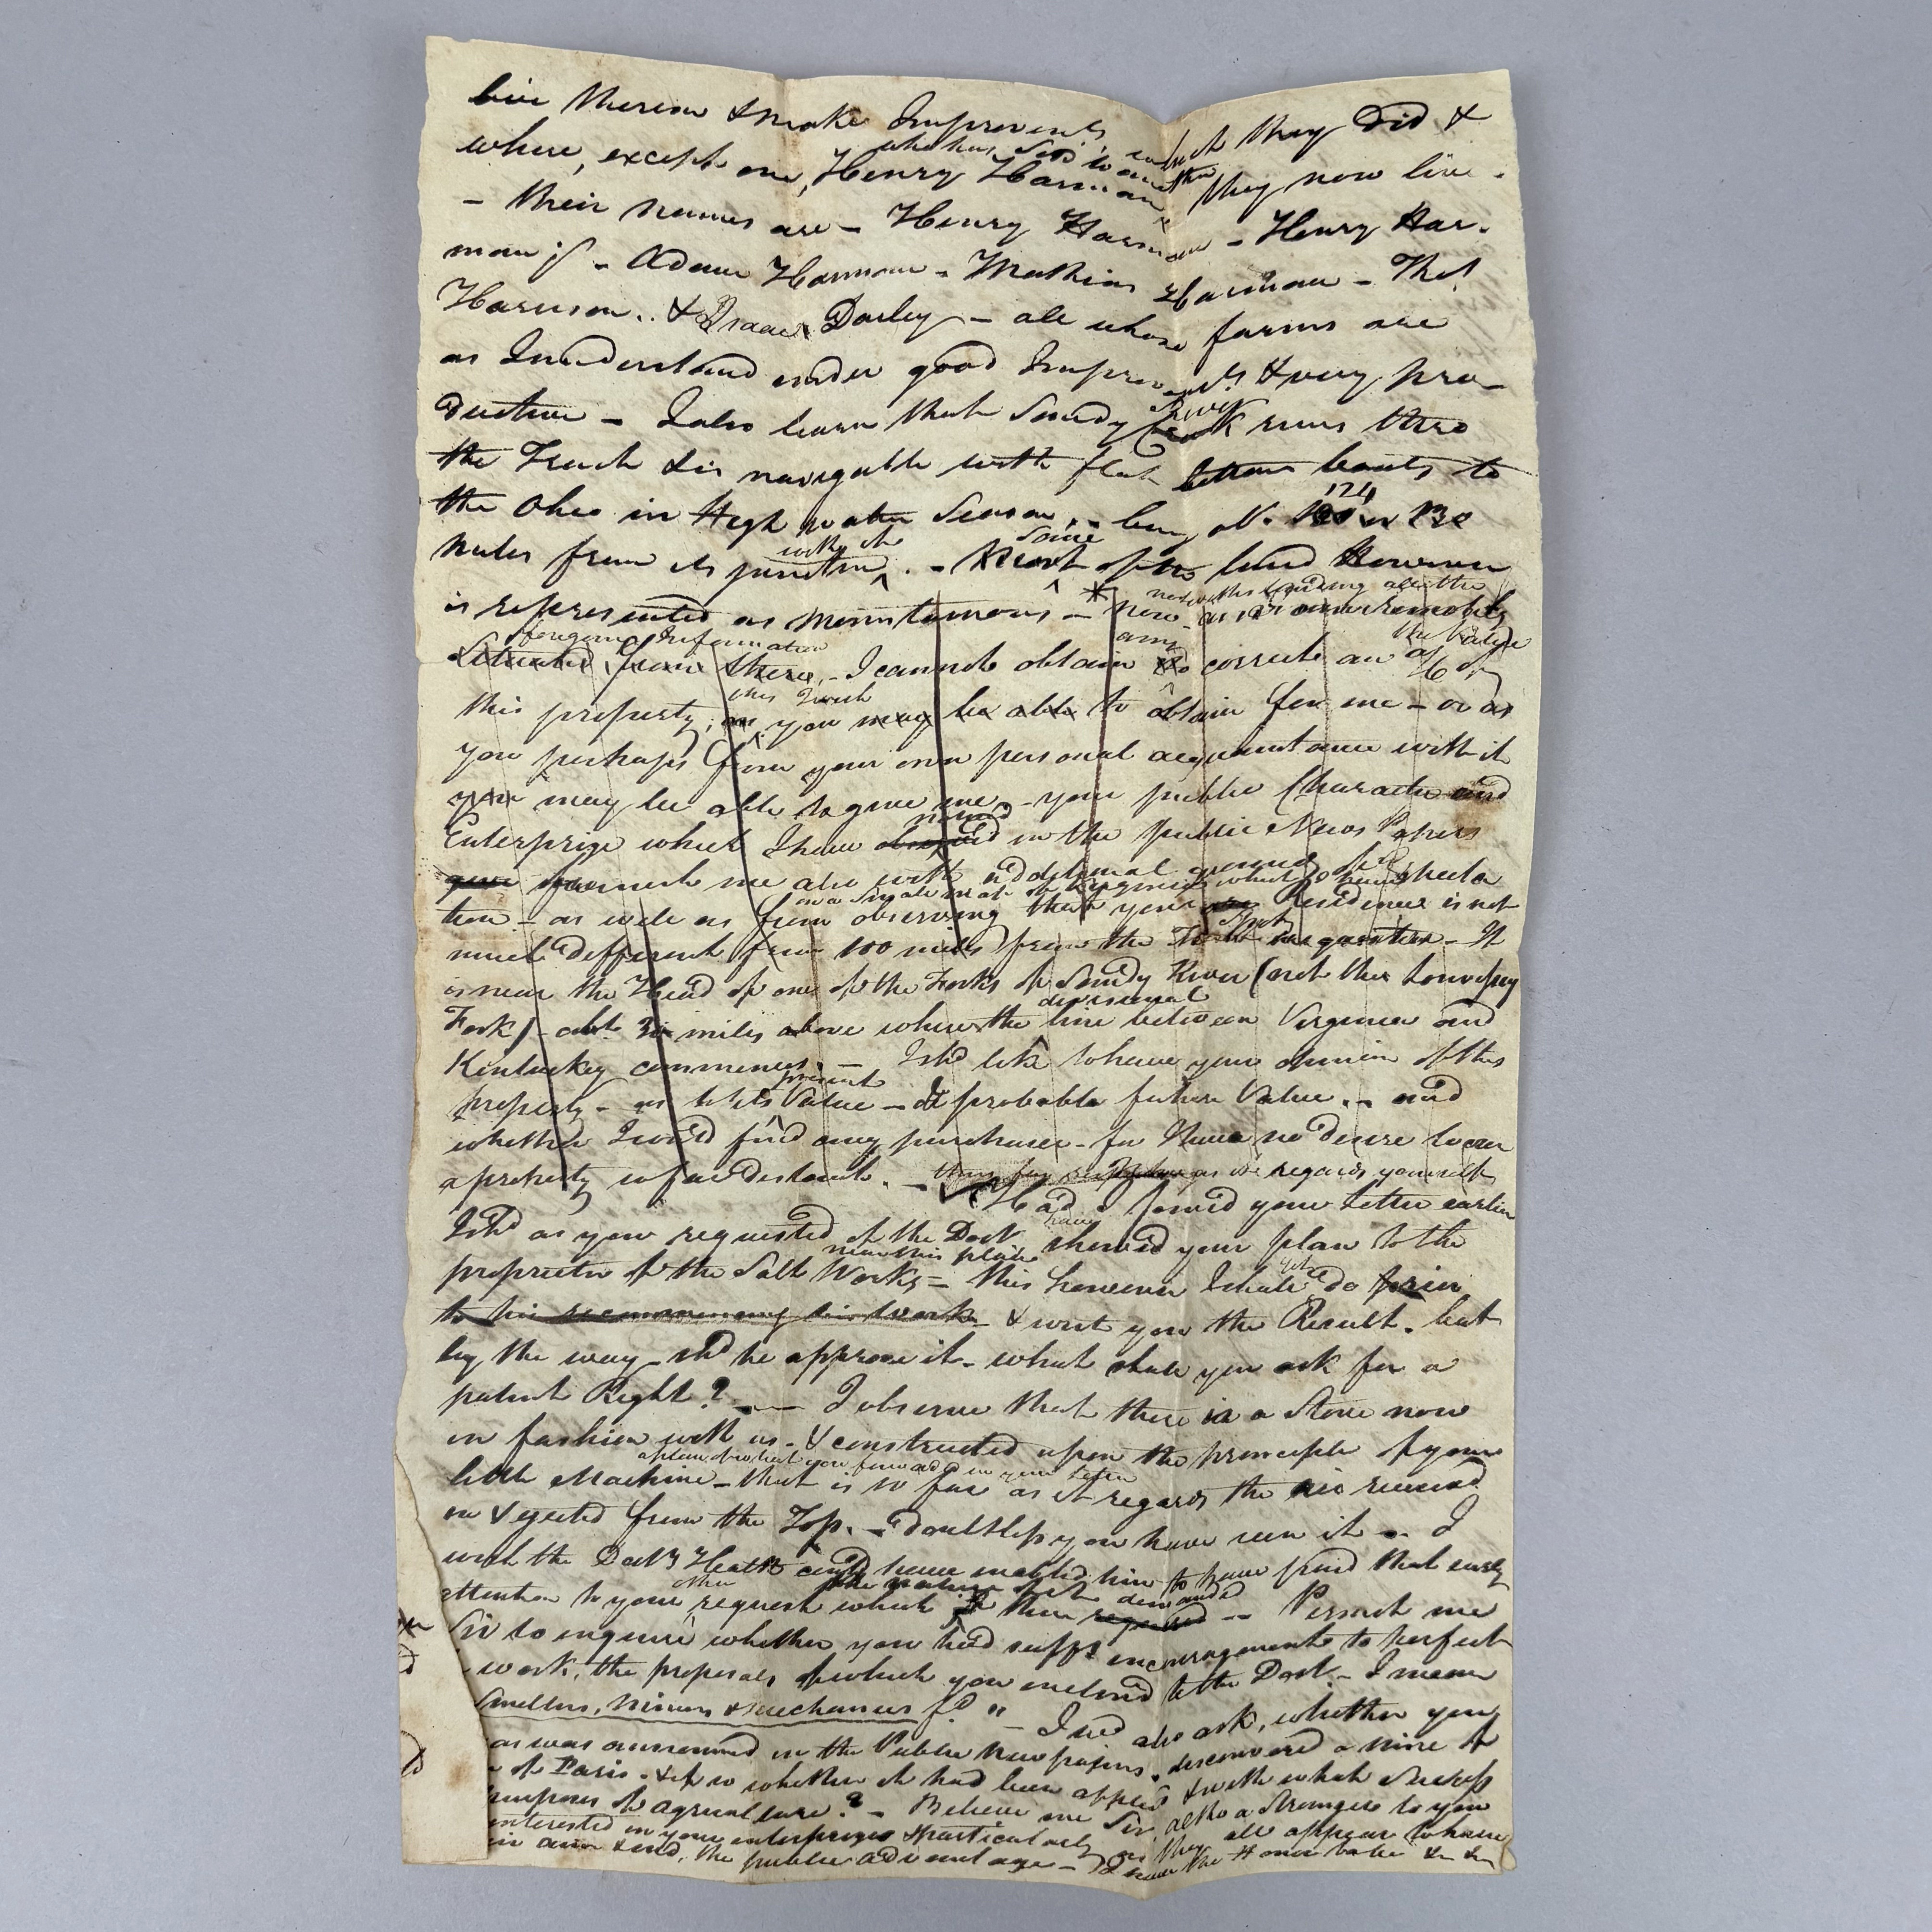 live thereon & make Improvents, which they did &
who has sold to another
where, except one, Henry Harman, they now live.
- their names are - Henry Harman - Henry Har-
man jr - Adam Harman - Mathias Harman - Thos
Harrison .. & Isaac Darley - all whose farms are
as I understand under good Improvemts & very pro-
River
duction - I also learn that Sandy Creek runs thro
the Track & is navigable with flat bottom boats to
124
the Ohio in High water Season, - being abt.
with the some
miles from its junction . - of the land However
notwithstanding all the
is represented as Mountainous - * now as
foregoing Information any the Value
Situated from there, - I cannot obtain so correct an of
this I wish
this property, as you may be able to obtain for me - or as
you perhaps from your own personal acquaintance with it
you may be able to give me - your public Character and
noticed
Enterprize which I have observed in the public News Papers
furnish me also with additional grounds of
on a small map of Virginia which I have
tion - as well as from observing that your Residence is not
Spot
much different from 100 miles from the in question - It
is near the Head of one of the Forks of Sandy River (not the
divisional
Fork) - abt 30 miles above where the line between Virginia and
Kentuckey commences. - I shd like to have your opinion of this
present
property - as to its Value - & probable future Value .. and
whether I would find any purchaser - for I have no desire to own
a property so far distant. - as it regards yourself
Had I found your letter earlier
have
I shd as you requested of the Doct shewed your plan to the
near this place
proprietor of the Salt Works - this however I shall yet do prior
to his recommencing his work & write you the Result. but
by the way - shd he approve it - what shall you ask for a
patent Right? - I observe that there is a Stove now
in fashion with us - & constructed upon the principle of your
a plan of which you forwarded in your letter
little Machine - that is so far as it regards the air received
in & ejected from the Top. - doubtless you have seen it - I
wish the Doctrs Health could have enabled him to have paid that early
other the nature of it demanded
attention to your request which then required - Permit me
Sir to enquire whether you had sufft encouragement to perfect
work, the proposals of which you enclosed to the Doct - I mean
Smelters, Miners & Mechanics " - I wd also ask, whether you
as was announced in the Public Newspapers, discovered a mine of
of Paris - & if so whether it had been applied & with what success
purposes of agriculture? - Believe me Sir, altho a Stranger to you
interested in your enterprizes & particularly as they all appear to have
in aim & end, the public advantage - I have the Honor to be &c &c